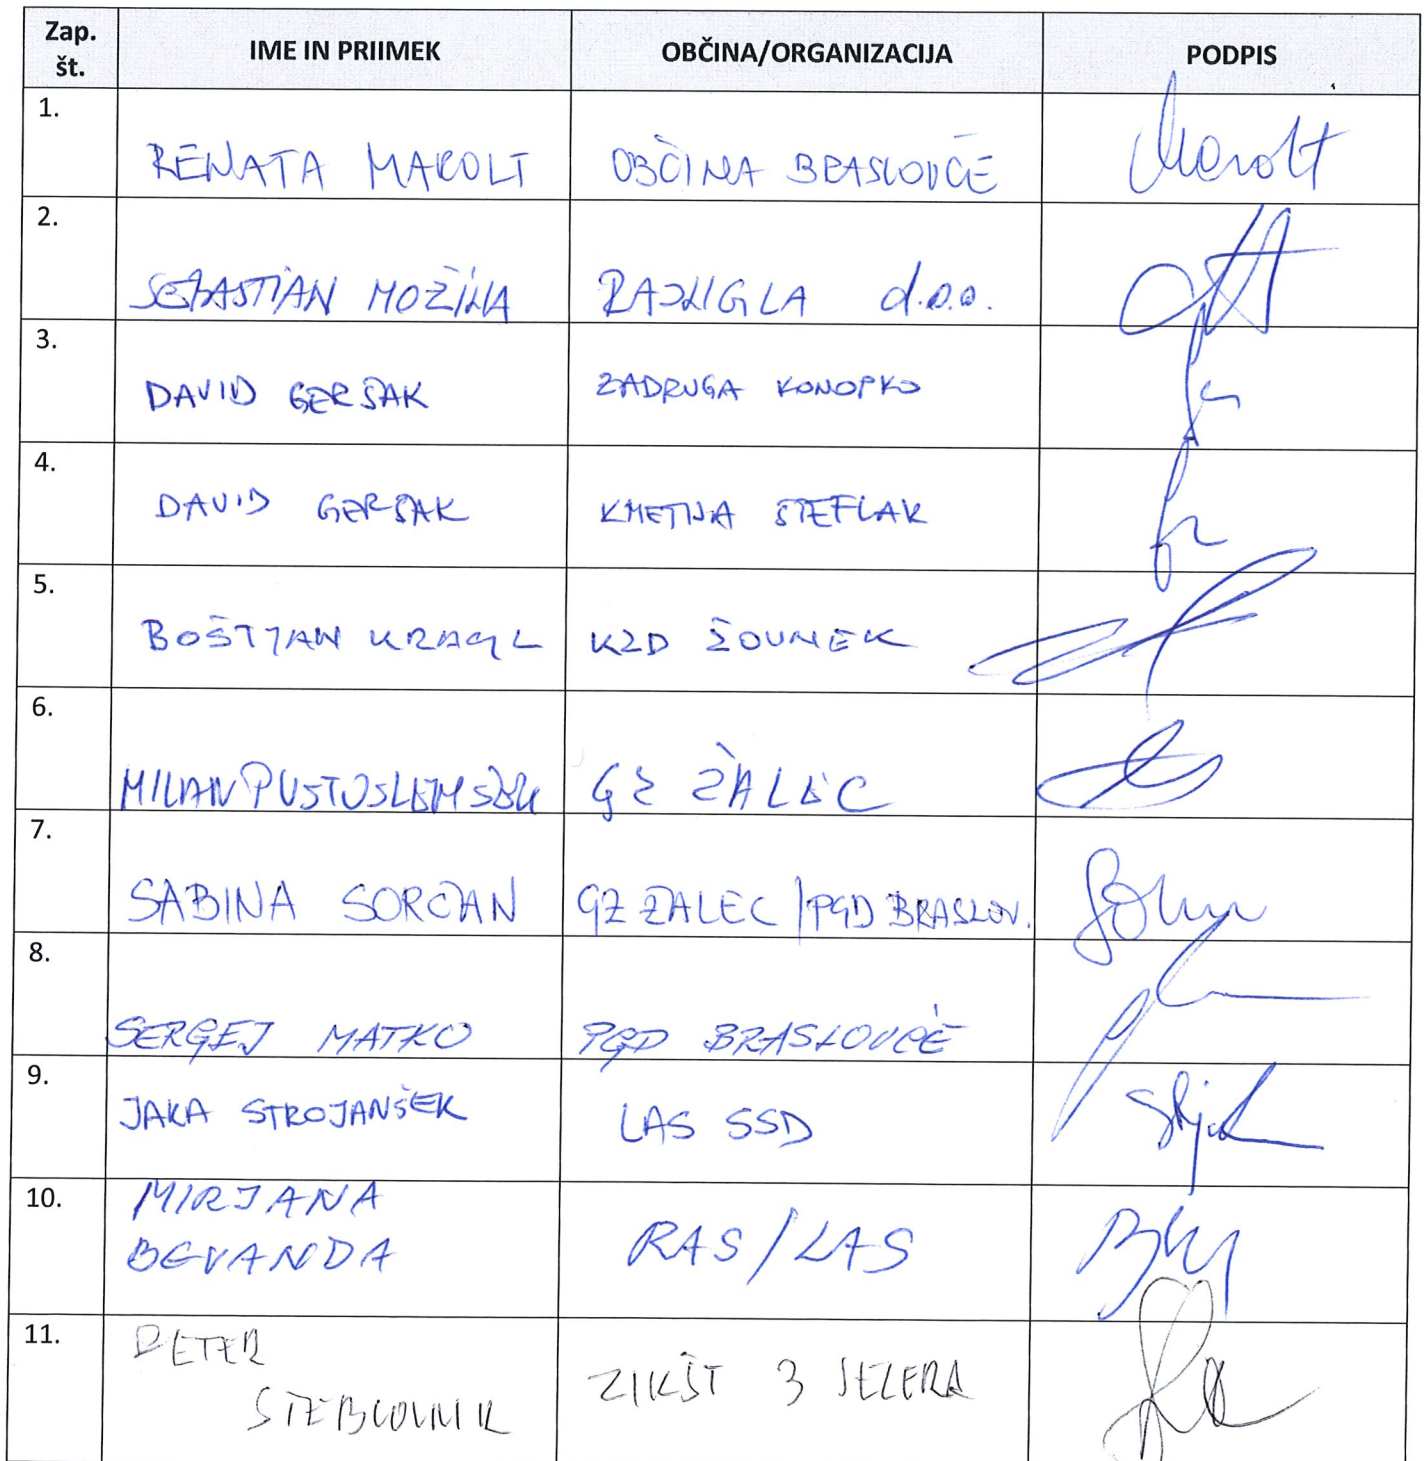 Zap. št. IME IN PRIIMEK OBČINA/ORGANIZACIJA PODPIS
1. RENATA MAROLT OBČINA BRASLOVČE Marolt
2. SEBASTIAN MOŽINA d.o.o.
3. DAVID GERŠAK ZADRUGA KONOPKO
4. DAVID GERŠAK KMETIJA ŠTEFLAK
5. BOŠTJAN KRAGL KZD ŽOVNEK
6. MILAN PUSTOSLEMŠEK GZ ŽALEC
7. SABINA SORČAN GZ ŽALEC / PGD BRASLOV.
8. SERGEJ MATKO PGD BRASLOVČE
9. JAKA STROJANŠEK LAS SSD
10. MIRJANA
BEVANDA RAS/LAS
11. PETER
STEBLOVNIK ZIKŠT 3 JEZERA